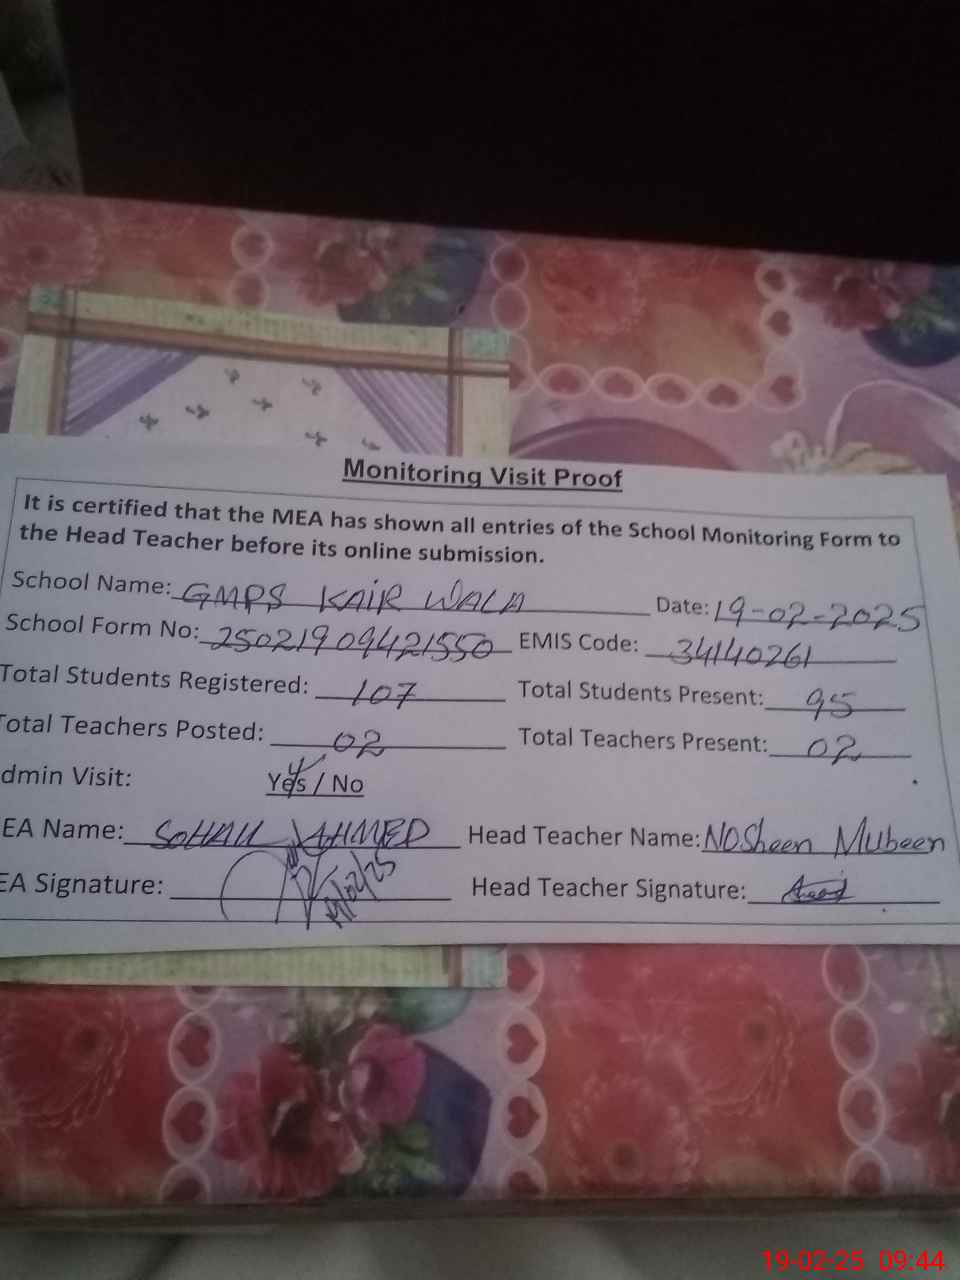 Monitoring Visit Proof
It is certified that the MEA has shown all entries of the School Monitoring Form to
the Head Teacher before its online submission.
School Name: GMPS KAIR WALA Date: 19-02-2025
School Form No: 25021909421550 EMIS Code: 34140261
Total Students Registered: 107 Total Students Present: 95
Total Teachers Posted: 02 Total Teachers Present: 02
dmin Visit: Yes / No
EA Name: SOHAIL AHMED Head Teacher Name: NOSheen Mubeen
EA Signature: 19/02/25 Head Teacher Signature:
19-02-25 09:44